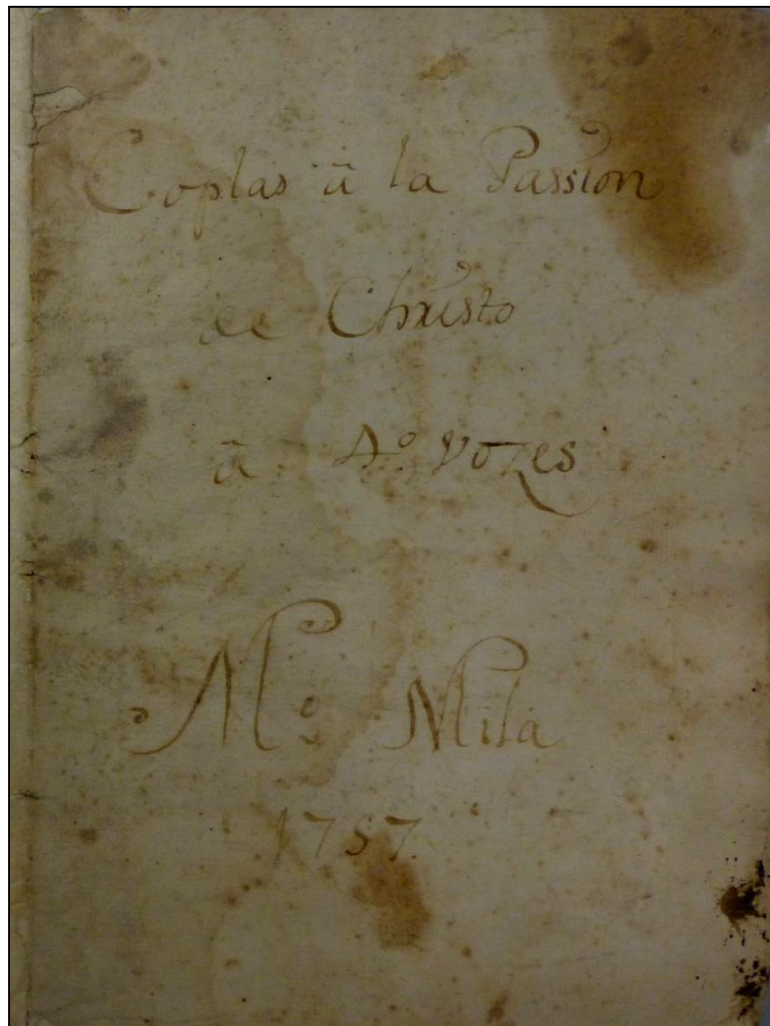 Coplas â la Passion
de Christo
â 4º Vozes
Mº Mila
1757.